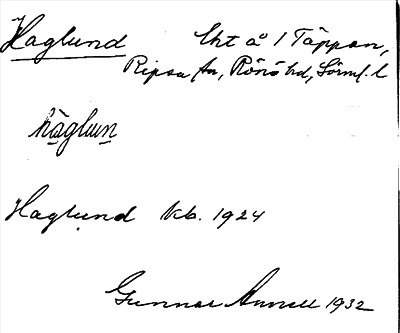 Haglund Lht å 1 Täppan,
Ripsa sn, Rönö hd, Sörml. l
hàglun
Haglund kb. 1924
Gunnar Annell 1932